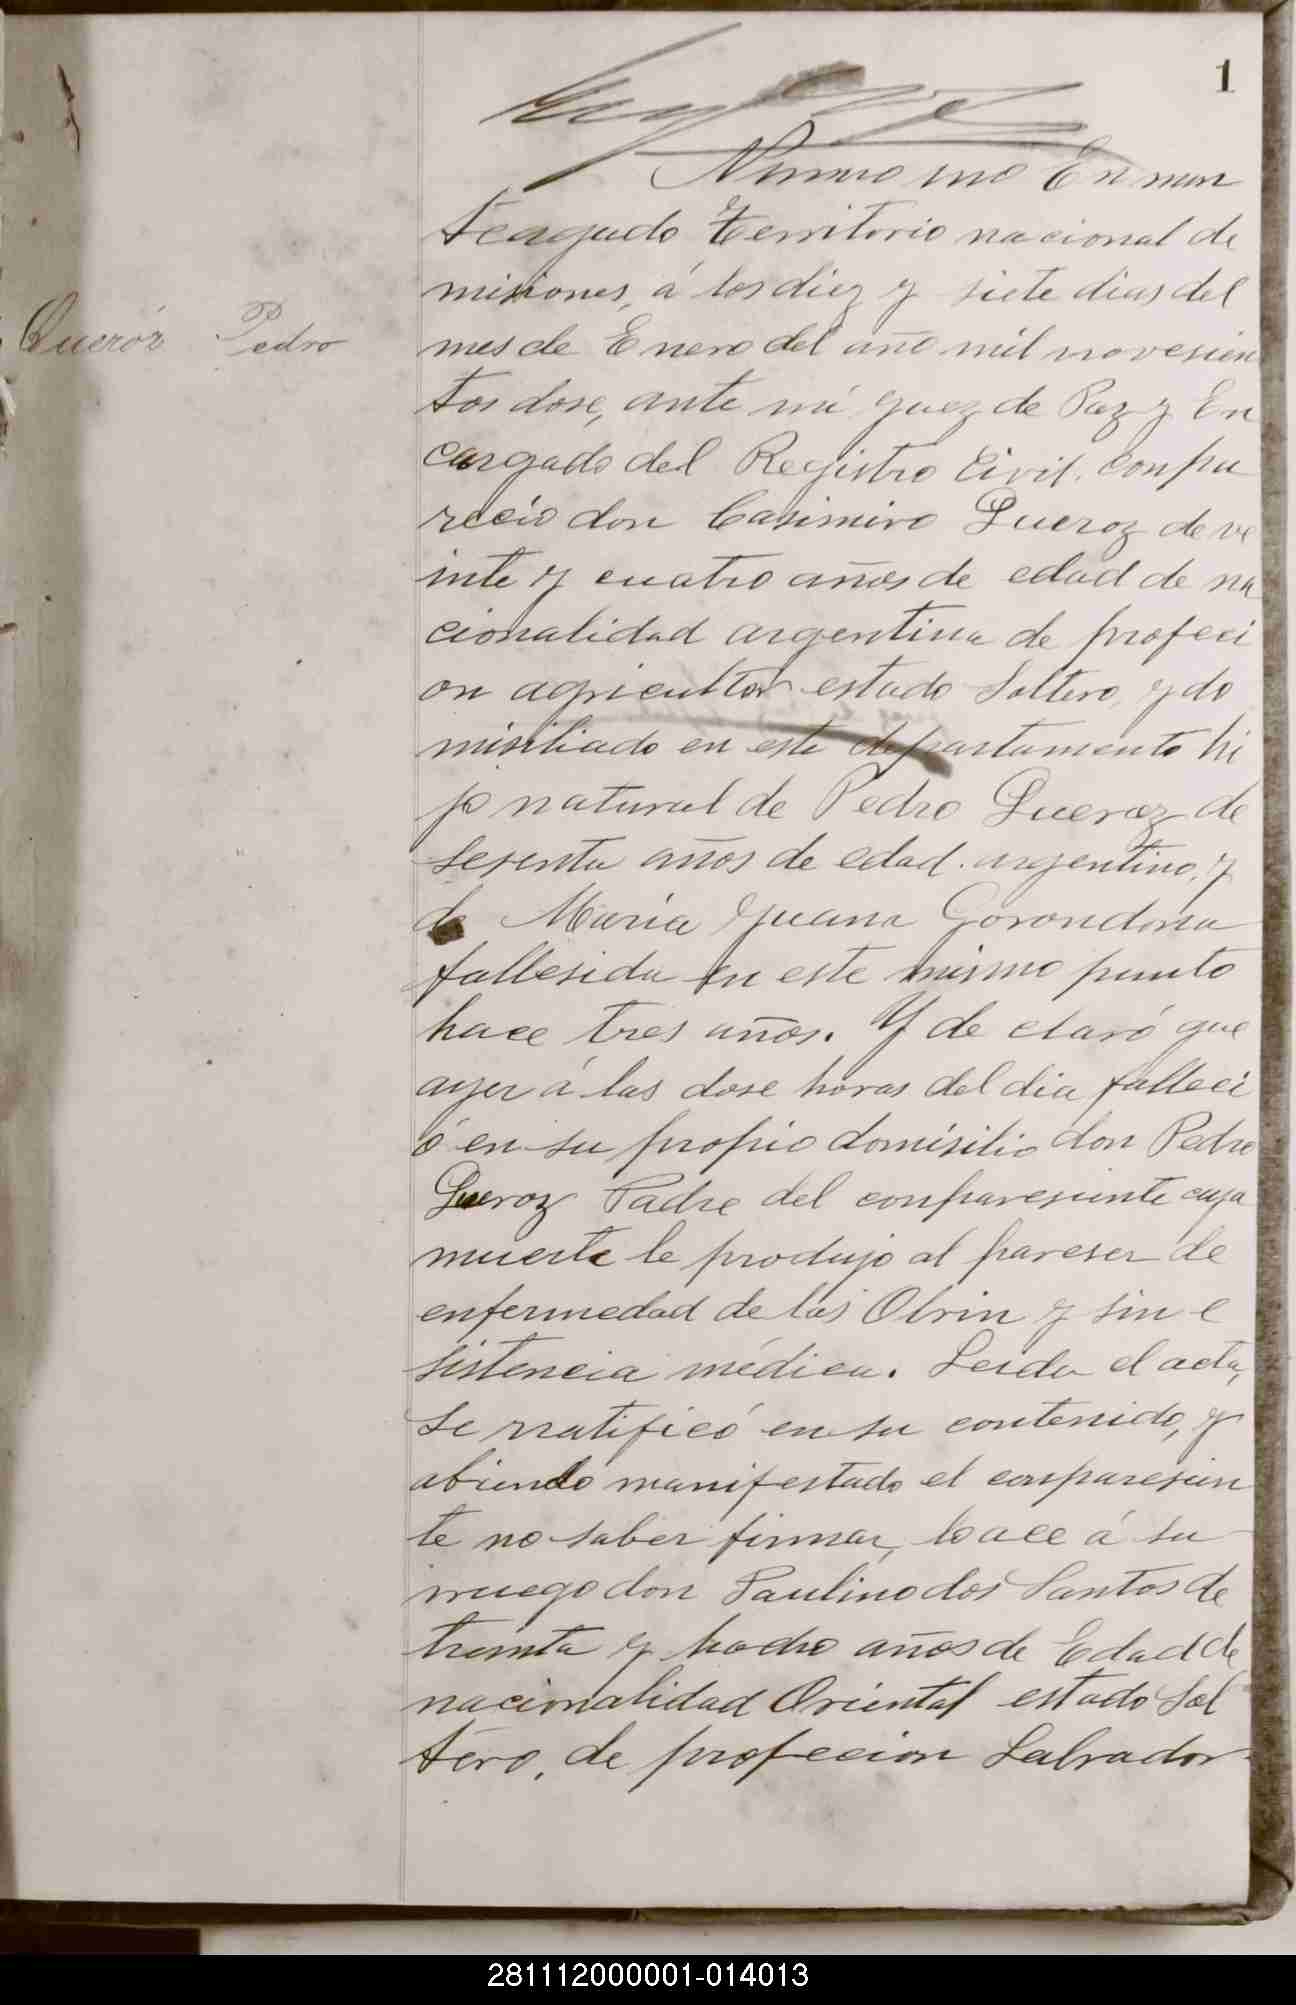 1
Numero uno En mon
teagudo, Territorio nacional de
misiones, á los diez y siete dias del
Queróz Pedro
mes de Enero del año mil novesien
tos dose, ante mí Juez de Paz y En
cargado del Registro Civil. Conpa
recio don Casimiro Queroz de ve
inte y cuatro años de edad de na
cionalidad argentina de profeci
on agricultor estado Soltero, y do
misiliado en este departamento hi
jo natural de Pedro Queroz de
sesenta años de edad. argentino, y
de Maria Juana Gorondona
fallesida en este mismo punto
hace tres años. Y de claró que
ayer á las dose horas del dia falleci
ó en su propio domisilio don Pedro
Queroz Padre del conparesiente cuya
muerte le produjo al pareser de
enfermedad de las Olrin y sin e
sistencia médica. Leida el acta,
se rratificó en su contenido, y
abiendo manifestado el conparesien
te no saber firmar, lo ace á su
rruego don Paulino dos Santos de
treinta y hocho años de Edad de
nacionalidad Oriental estado Sol
tero, de profecion Labrador
281112000001-014013